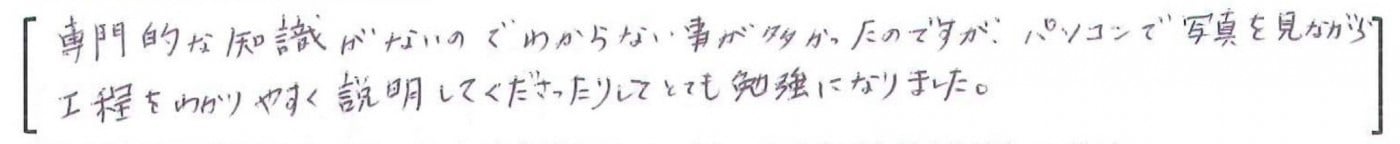 [専門的な知識がないのでわからない事が多かったのですが、パソコンで写真を見ながら
工程をわかりやすく説明してくださったりしてとても勉強になりました。]